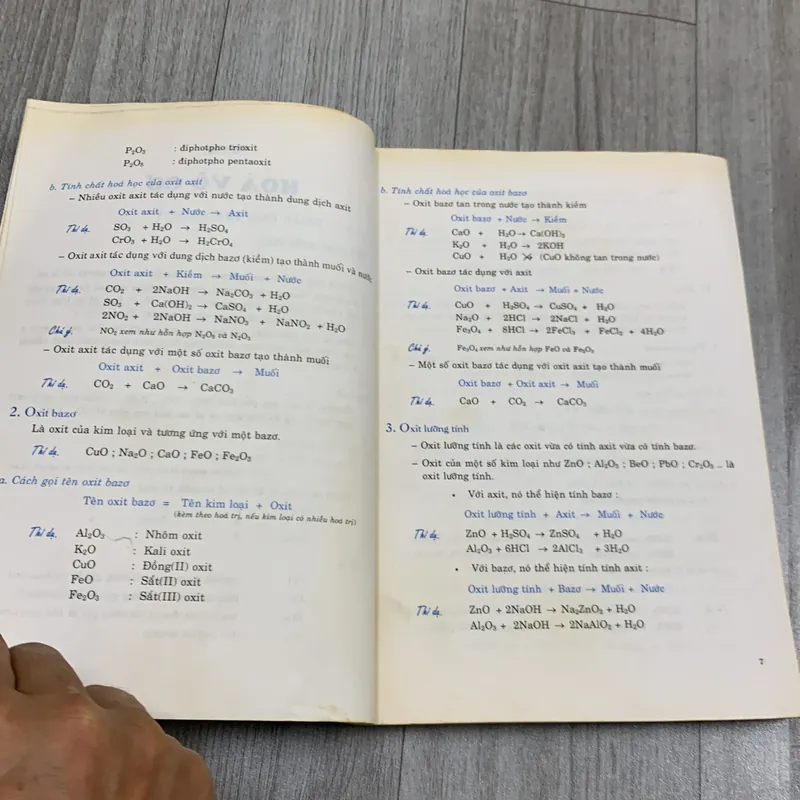 P₂O₃ : điphotpho trioxit
P₂O₅ : điphotpho pentaoxit
b. Tính chất hoá học của oxit axit
– Nhiều oxit axit tác dụng với nước tạo thành dung dịch axit
Oxit axit + Nước → Axit
Thí dụ. SO₃ + H₂O → H₂SO₄
CrO₃ + H₂O → H₂CrO₄
– Oxit axit tác dụng với dung dịch bazơ (kiềm) tạo thành muối và nước
Oxit axit + Kiềm → Muối + Nước
Thí dụ. CO₂ + 2NaOH → Na₂CO₃ + H₂O
SO₃ + Ca(OH)₂ → CaSO₄ + H₂O
2NO₂ + 2NaOH → NaNO₃ + NaNO₂ + H₂O
Chú ý. NO₂ xem như hỗn hợp N₂O₅ và N₂O₃
– Oxit axit tác dụng với một số oxit bazơ tạo thành muối
Oxit axit + Oxit bazơ → Muối
Thí dụ. CO₂ + CaO → CaCO₃
2. Oxit bazơ
Là oxit của kim loại và tương ứng với một bazơ.
Thí dụ. CuO ; Na₂O ; CaO ; FeO ; Fe₂O₃
a. Cách gọi tên oxit bazơ
Tên oxit bazơ = Tên kim loại + Oxit
(kèm theo hoá trị, nếu kim loại có nhiều hoá trị)
Thí dụ. Al₂O₃ : Nhôm oxit
K₂O : Kali oxit
CuO : Đồng(II) oxit
FeO : Sắt(II) oxit
Fe₂O₃ : Sắt(III) oxit
b. Tính chất hoá học của oxit bazơ
– Oxit bazơ tan trong nước tạo thành kiềm
Oxit bazơ + Nước → Kiềm
Thí dụ. CaO + H₂O → Ca(OH)₂
K₂O + H₂O → 2KOH
CuO + H₂O ↛ (CuO không tan trong nước)
– Oxit bazơ tác dụng với axit
Oxit bazơ + Axit → Muối + Nước
Thí dụ. CuO + H₂SO₄ → CuSO₄ + H₂O
Na₂O + 2HCl → 2NaCl + H₂O
Fe₃O₄ + 8HCl → 2FeCl₃ + FeCl₂ + 4H₂O
Chú ý. Fe₃O₄ xem như hỗn hợp FeO và Fe₂O₃
– Một số oxit bazơ tác dụng với oxit axit tạo thành muối
Oxit bazơ + Oxit axit → Muối
Thí dụ. CaO + CO₂ → CaCO₃
3. Oxit lưỡng tính
– Oxit lưỡng tính là các oxit vừa có tính axit vừa có tính bazơ.
– Oxit của một số kim loại như ZnO ; Al₂O₃ ; BeO ; PbO ; Cr₂O₃ ... là
oxit lưỡng tính.
• Với axit, nó thể hiện tính bazơ :
Oxit lưỡng tính + Axit → Muối + Nước
Thí dụ. ZnO + H₂SO₄ → ZnSO₄ + H₂O
Al₂O₃ + 6HCl → 2AlCl₃ + 3H₂O
• Với bazơ, nó thể hiện tính tính axit :
Oxit lưỡng tính + Bazơ → Muối + Nước
Thí dụ. ZnO + 2NaOH → Na₂ZnO₂ + H₂O
Al₂O₃ + 2NaOH → 2NaAlO₂ + H₂O
7